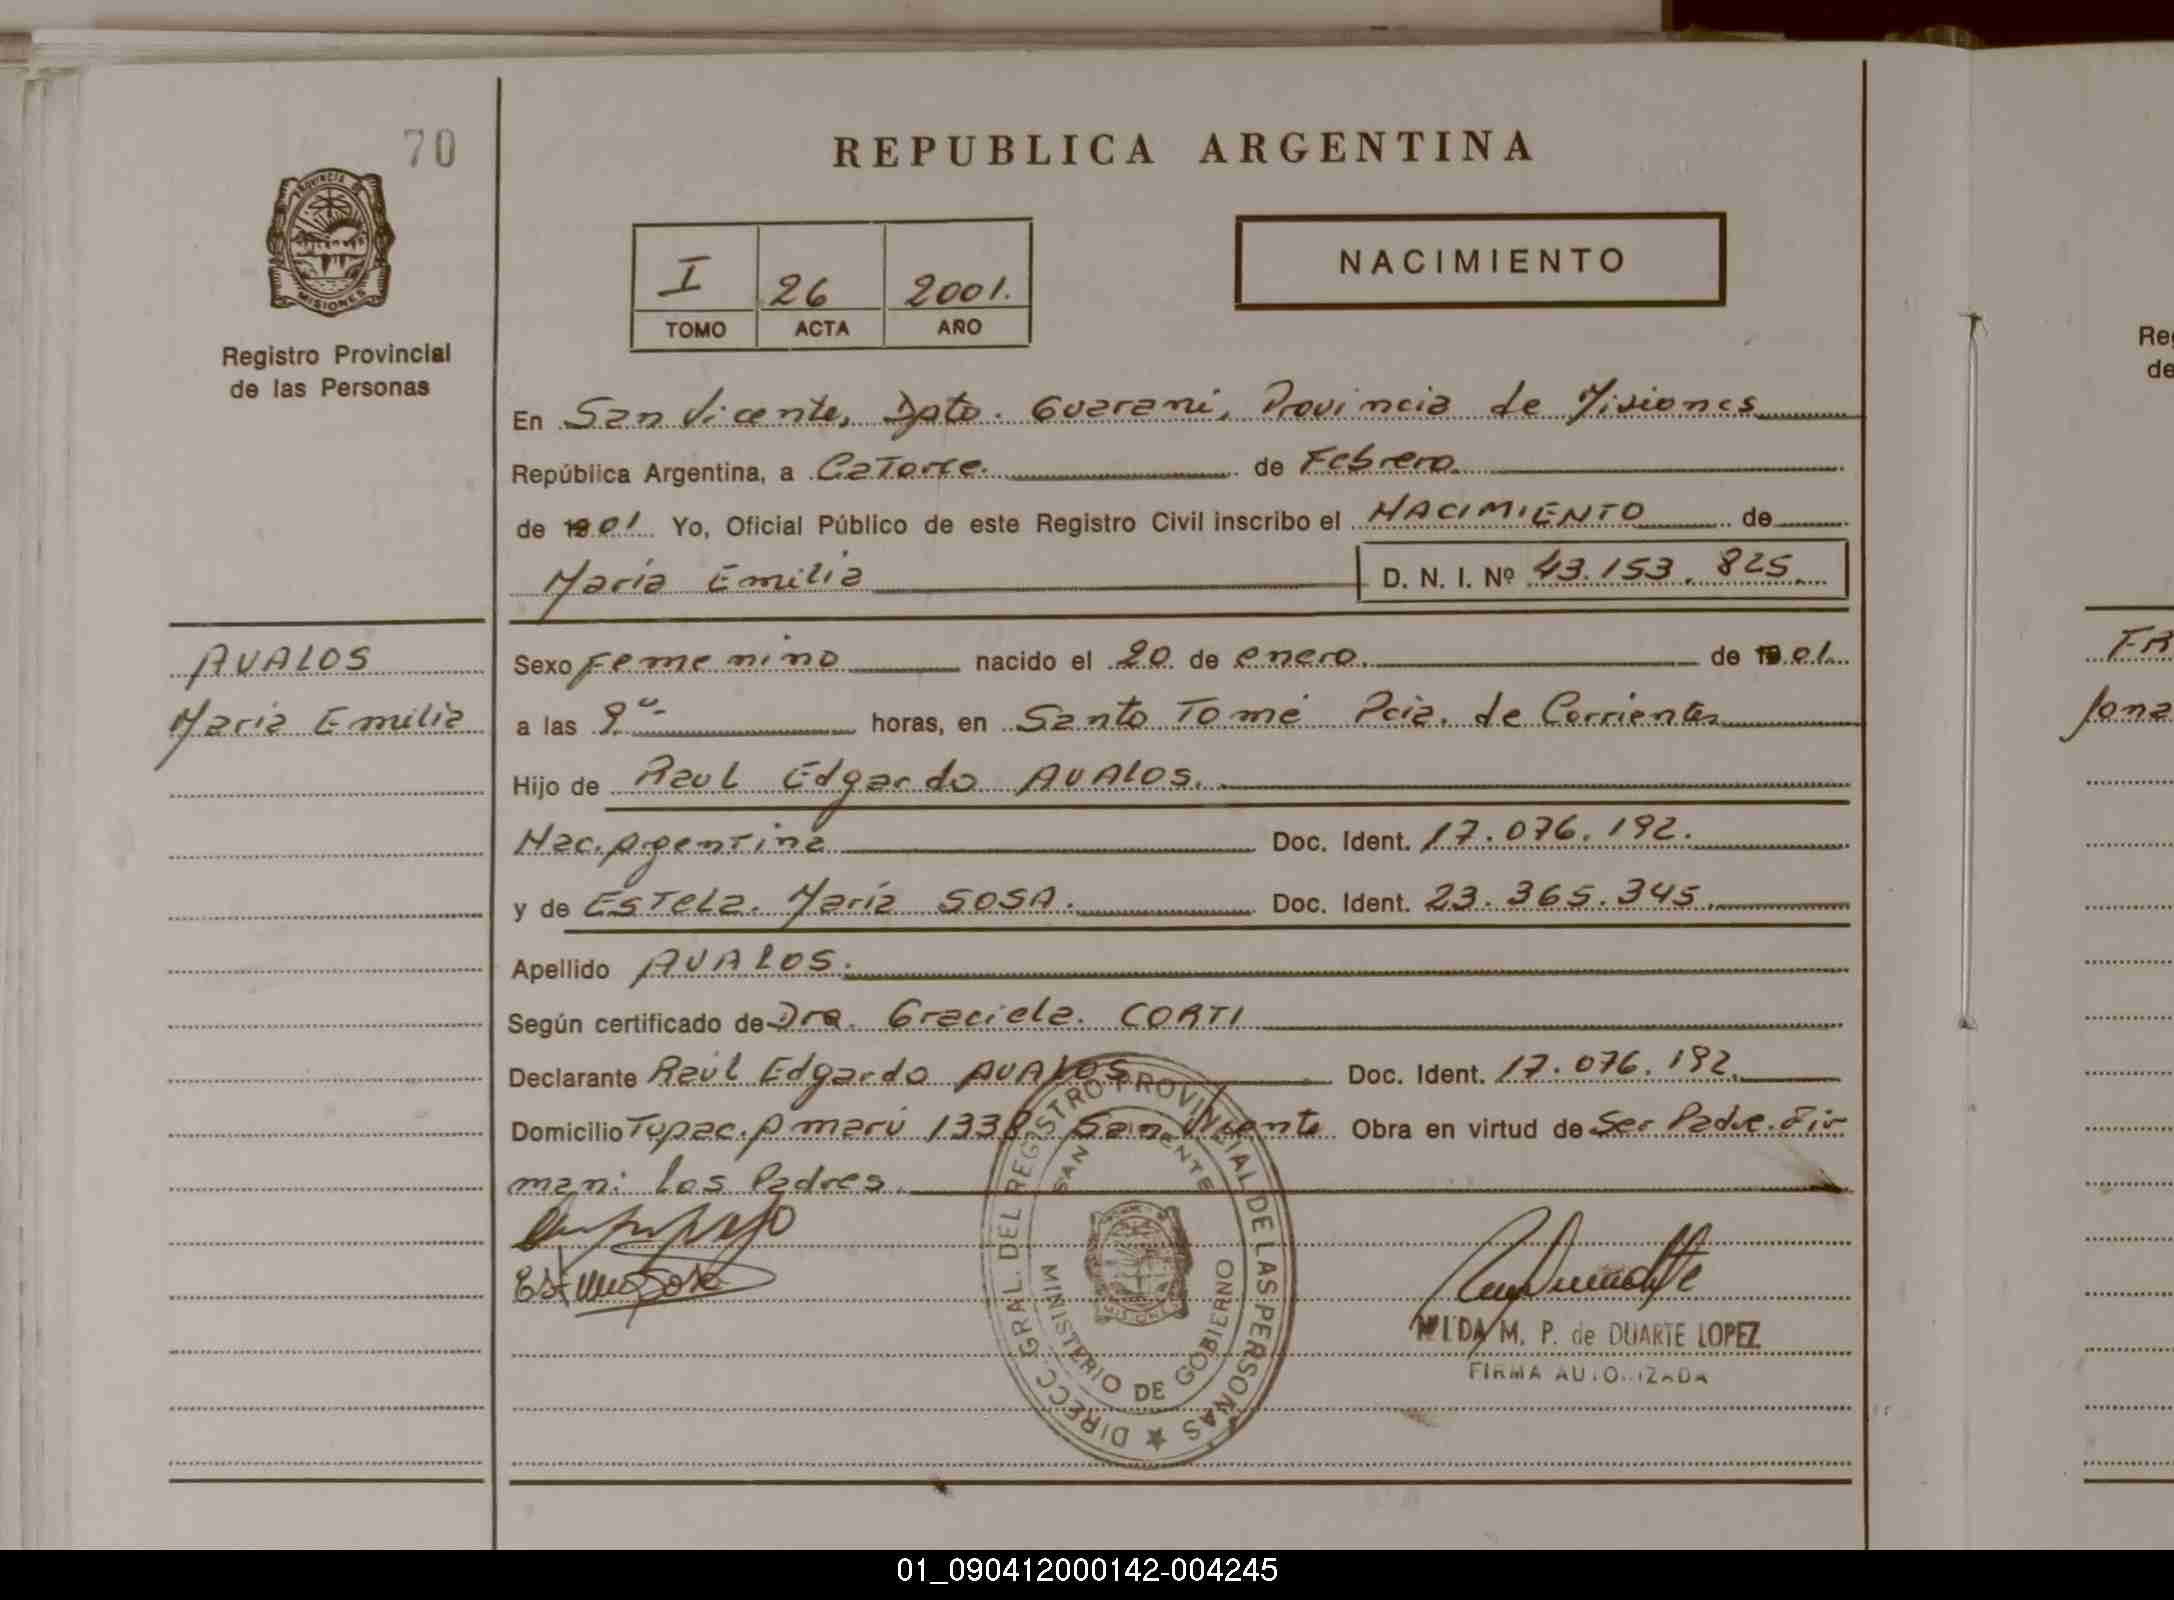 70
PROVINCIA DE
MISIONES
Registro Provincial
de las Personas
AVALOS
Maria Emilia
REPUBLICA ARGENTINA
I 26 2001.
TOMO ACTA AÑO
NACIMIENTO
En San Vicente, Dpto. Guarani, Provincia de Misiones
República Argentina, a Catorce. de Febrero.
de 01 Yo, Oficial Público de este Registro Civil inscribo el NACIMIENTO de
María Emilia D. N. I. Nº 43.153.825.
Sexo Femenino nacido el 20 de enero. de 01.
a las 9 horas, en Santo Tomé Pcia. de Corrientes
Hijo de Raul Edgardo AVALOS.
Nac. Argentina Doc. Ident. 17.076.192.
y de Estela. María SOSA. Doc. Ident. 23.365.345.
Apellido AVALOS.
Según certificado de Dra. Graciela. CORTI
Declarante Raúl Edgardo AVALOS Doc. Ident. 17.076.192.
Domicilio Tupac. Amarú 1338 San Vicente Obra en virtud de Ser Padre. Fir
man: los Padres.
DIRECC. GRAL. DEL REGISTRO PROVINCIAL DE LAS PERSONAS
SAN VICENTE
MINISTERIO DE GOBIERNO
M. P. de DUARTE LOPEZ
FIRMA AUTORIZADA
Re
de
FR
Jona
01_090412000142-004245